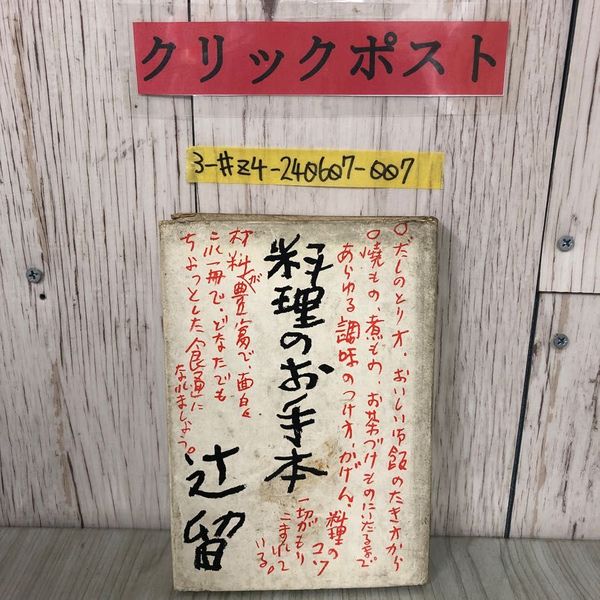 クリックポスト
3-#z4-240607-007
○だしのとり方、おいしい御飯のたき方から
○焼もの、煮もの、お茶づけものにいたるまで
あらゆる調味のつけ方、かげん、
料理の
コツ
一切がもり
こまれて
いる。
料理のお手本
辻留
材料が豊富で、面白く
これ一冊で、どなたでも
ちょっとした食通に
なれましょう。